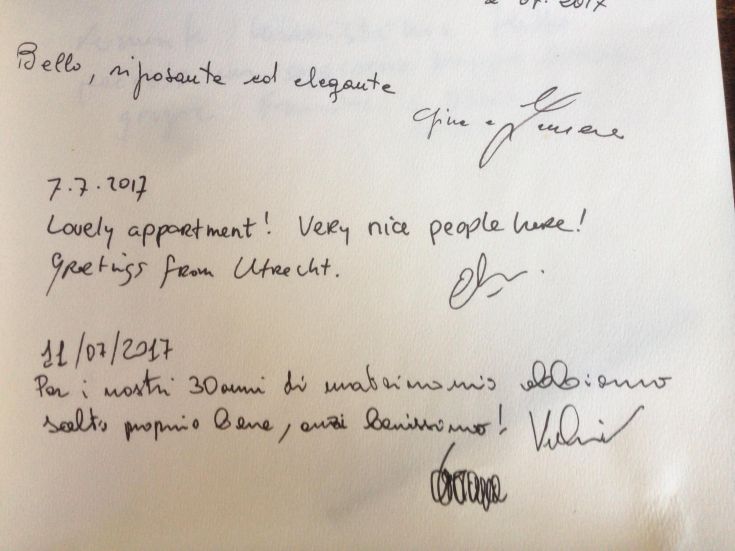 07.2017
Bello, riposante ed elegante
7.7.2017
Lovely appartment! Very nice people here!
Greetings from Utrecht.
11/07/2017
Per i nostri 30 anni di matrimonio abbiamo
scelto proprio bene, anzi benissimo!